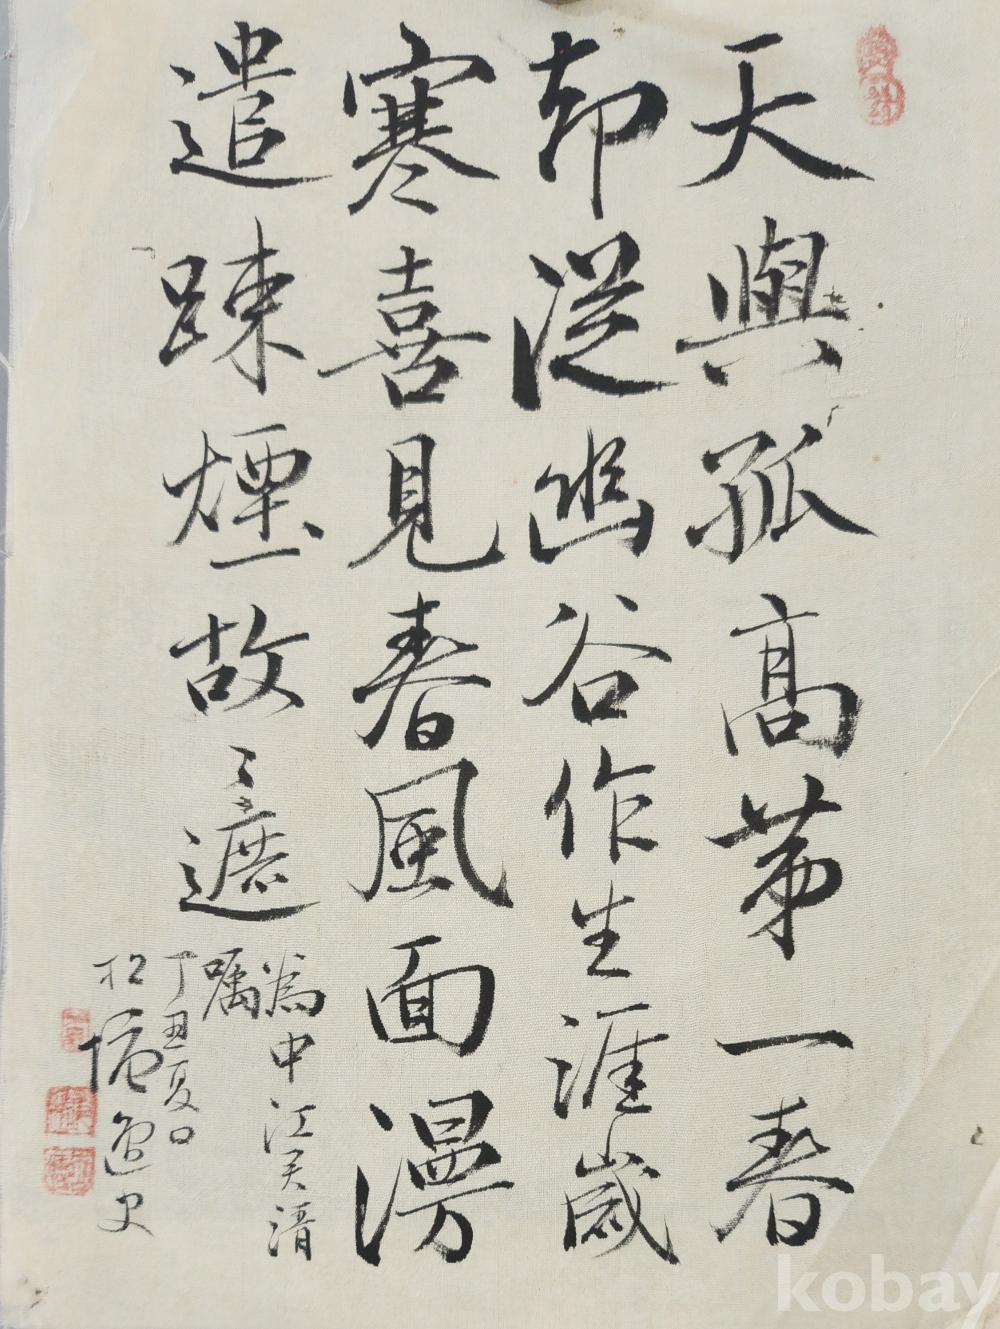 天與孤高第一春
却從幽谷作生涯歲
寒喜見春風面漫
遣疎煙故〻遮
為中江天清
囑
丁丑夏日
松
逸史
kobay